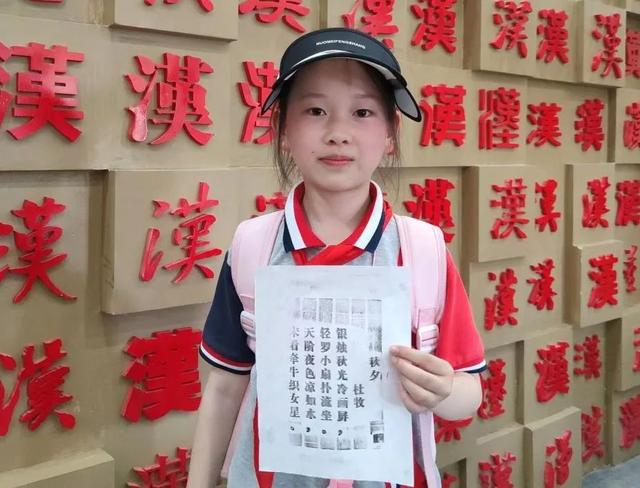 漢 漢 漢 漢 漢 漢 漢
漢 漢 漢 漢 漢 漢 漢 漢
漢 漢 漢 漢 漢 漢 漢 漢
漢 漢 漢 漢
漢 漢 漢 漢 漢
漢 漢 漢 漢
秋夕
杜牧
银烛秋光冷画屏，
轻罗小扇扑流坐。
天阶夜色凉如水，
看牵牛织女星。